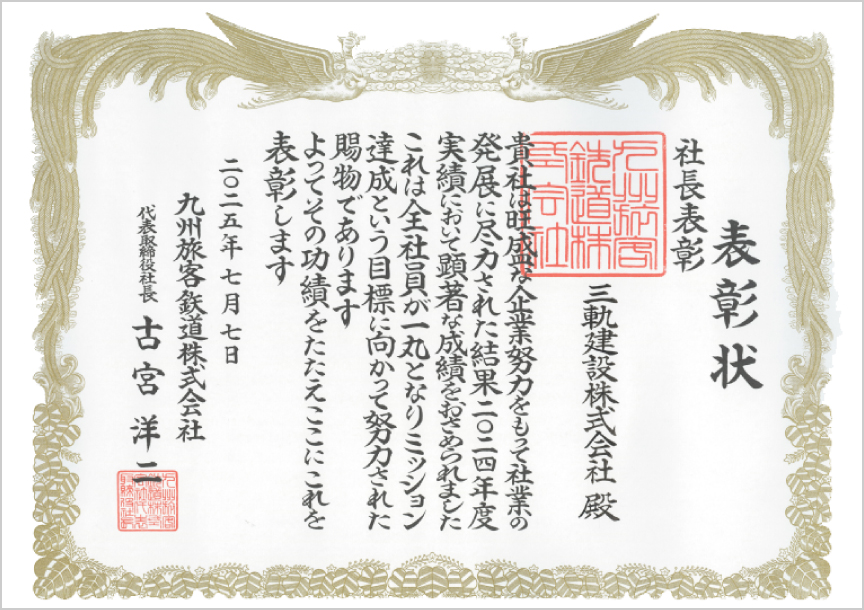 表彰状
社長表彰
三軌建設株式会社 殿
貴社は旺盛な企業努力をもって社業の
発展に尽力された結果二〇二四年度
実績において顕著な成績をおさめられました
これは全社員が一丸となりミッション
達成という目標に向かって努力された
賜物であります
よってその功績をたたえここにこれを
表彰します
二〇二五年 七月 七日
九州旅客鉄道株式会社
代表取締役社長
古宮洋二
九州旅客
鉄道株
式会社